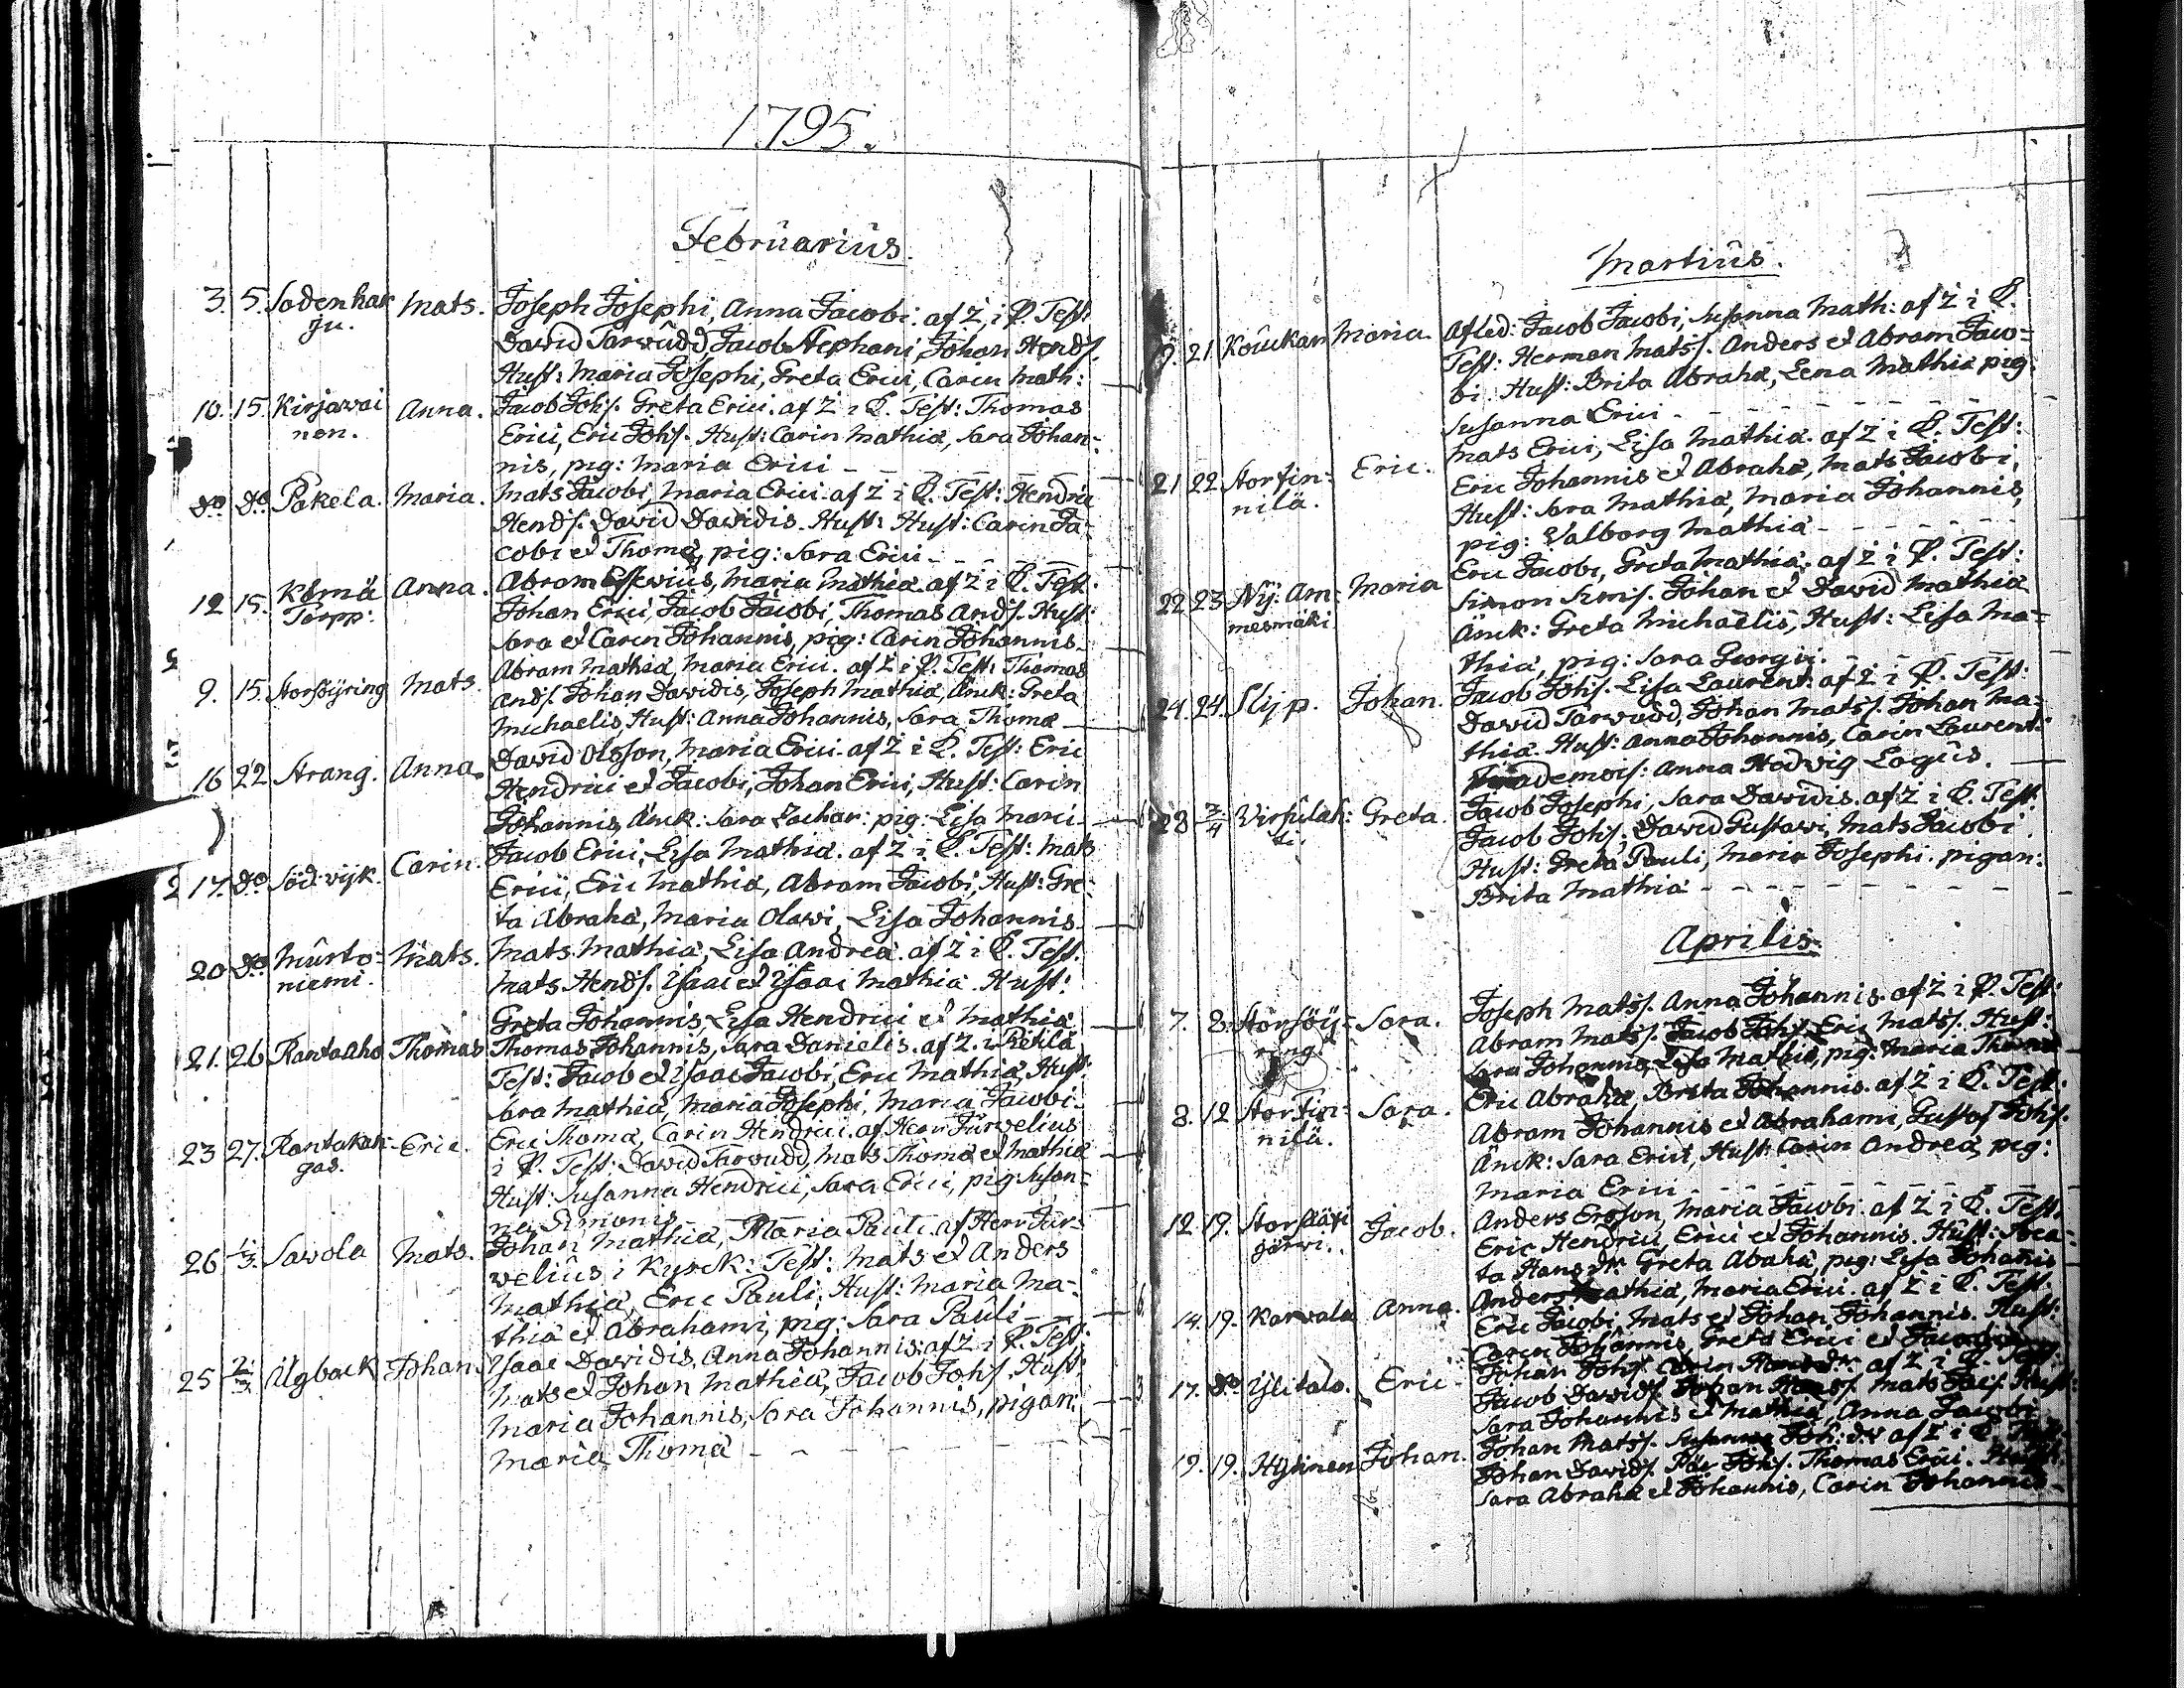 1795.
Februarius.
3. 5. Sodenhar Mats. Joseph Josephi, Anna Jacobi. af Z. i P. Test:
ju. David Tarvudd Jacob Stephani, Johan Hends.
Hust: Maria Josephi, Greta Erici, Carin Math:
10. 15. Kirjavai Anna. Jacob Johs. Greta Erici. af Z i C. Test: Thomas
nen. Erici, Eric Johs. Hust: Carin Mathiæ, Sara Johan-
nis, pig: Maria Erici
do do Pakela. Maria. Mats Jacobi, Maria Erici. af Z i C. Test: Hendric
Hends. David Davidis. Hust: Hust: Carin Ja-
cobi et Thomæ, pig: Sara Erici
12 15. Anna. Abram Maria Mathiæ. af Z i C. Test:
Torpp: Johan Erici, Jacob Jacobi, Thomas Ands. Hust:
Sara et Carin Johannis, pig: Carin Johannis.
9. 15. Storsöyring Mats. Abram Mathiæ, Maria Erici. af Z i P. Test: Thomas
Ands. Johan Davidis, Joseph Mathiæ, Änck: Greta
Michaelis, Hust: Anna Johannis, Sara Thomæ
16 22 Strang. Anna. David Olsson, Maria Erici. af Z i C. Test: Eric
Hendrici et Jacobi, Johan Erici, Hust: Carin
Johannis, Änck: Sara Zachar: pig: Lisa Marci
17. do Söd: vijk. Carin. Jacob Erici, Lisa Mathiæ. af Z i C. Test: Mats
Ericii, Eric Mathiæ, Abram Jacobi, Hust: Gre-
ta Abrahæ, Maria Olavi, Lisa Johannis.
20 do Murto- Mats. Mats Mathiæ, Lisa Andreæ. af Z i C. Test.
niemi. Mats Hends. Isaac et Isaac Mathiæ. Hust:
Greta Johannis, Lisa Hendrici et Mathiæ
21. 26 Rantaaho Thomas Thomas Johannis, Sara Danielis. af Z. i
Test: Jacob et Isaac Jacobi, Eric Mathiæ, Hust:
Sara Mathiæ, Maria Josephi, Maria Jacobi
23 27. Rantakan- Eric. Eric Thomæ, Carin Hendrici. af Herr Jurvelius
gas. i P. Test: David Tarvudd, Mats Thomæ et Mathiæ
Hust: Susanna Hendrici, Sara Erici, pig Susan-
na Simonis
26 1/3. Savola Mats. Johan Mathiæ, Maria Pauli. af Herr Jur-
velius i Kyrck: Test: Mats et Anders
Mathiæ, Eric Pauli, Hust: Maria Ma-
thiæ et Abrahami, pig: Sara Pauli
25 2/3. Älgback Johan. Isaac Davidis, Anna Johannis: af Z i P. Test:
Mats et Johan Mathiæ, Jacob Johs. Hust:
Maria Johannis, Sara Johannis, pigan:
Maria Thomæ
Martius.
9. 21. Koiukan Maria. Afled: Jacob Jacobi, Susanna Math: af Z i C.
Test: Herman Matss. Anders et Abram Jaco-
bi. Hust: Brita Abrahæ, Lena Mathiæ pig.
Susanna Erici
21 22 Storfin- Eric. Mats Erici, Lisa Mathiæ. af Z i C. Test:
nilä. Eric Johannis et Abrahæ, Mats Jacobi,
Hust: Sara Mathiæ, Maria Johannis,
pig: Valborg Mathiæ
22 23 Nij. Am- Maria Eric Jacobi, Greta Mathiæ. af Z i P. Test:
mesmäki Simon Sims. Johan et David Mathiæ
Änck: Greta Michaëlis, Hust: Lisa Ma-
thiæ, pig: Sara Georgii.
24. 24. Slijp. Johan. Jacob Johs. Lisa Laurent: af Z i P. Test:
David Tarvudd, Johan Matss. Johan Ma-
thiæ. Hust: Anna Johannis, Carin Laurent:
demois: Anna Hedvig Logus.
28 3/4 Virsulah- Greta. Jacob Josephi, Sara Davidis. af Z i C. Test:
ti. Jacob Johs. David Gustavi, Mats Jacobi
Hust: Greta Pauli, Maria Josephi. pigan:
Brita Mathiæ
Aprilis.
7. 8. Storsöy- Sara. Joseph Matss. Anna Johannis. af Z i P. Test:
ring. Abram Matss. Jacob Johs. Eric Matss. Hust:
Sara Johannis, Lisa Mathiæ, pig: Maria Thomæ
8. 12 Storfin- Sara. Eric Abrahæ, Brita Johannis. af Z i C. Test:
nilä. Abram Johannis et Abrahami, Gustaf Johs.
Änck: Sara Erici, Hust: Carin Andreæ, pig:
Maria Erici
12. 19. Jacob. Anders Ersson, Maria Jacobi. af Z i C. Test.
järvi. Eric Hendrici, Erici et Johannis. Hust: Bea-
ta Hans dr. Greta Abahæ, pig: Lisa Johanis
14. 19. Karvala Anna. Anders Mathiæ, Maria Erici. af Z i C. Test:
Eric Jacobi, Mats et Johan Johannis. Hust:
Carin Johannis, Greta Erici et
17. do Ylitalo. Eric Johan Johs. Carin af Z i C. Test:
Jacob Davids. Johan Mats Hust:
Sara Johannis et Mathiæ, Anna Jacobi
19. 19. Hylinen Johan. Johan Matss. Susanna Joh: dr. af Z i C. Test.
Johan Davids. Johs. Thomas Erici. Hust:
Sara Abrahæ et Johannis, Carin Johannis